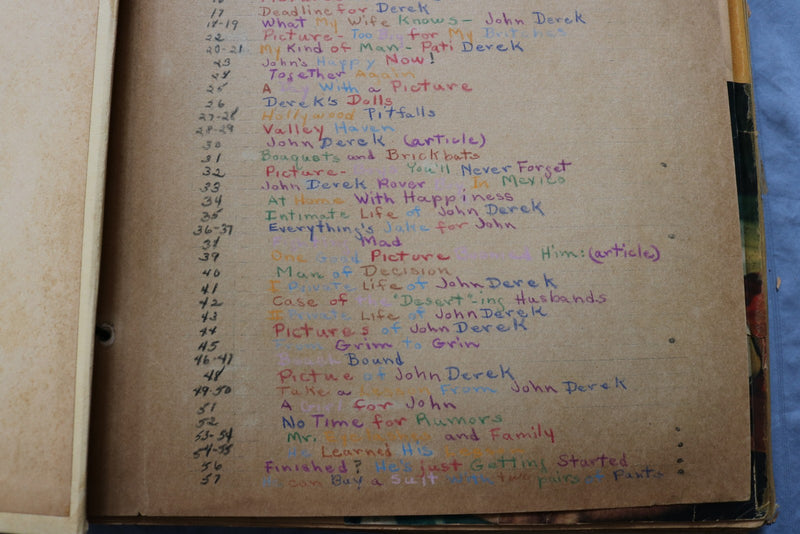 17 Deadline for Derek
18-19 What My Wife Knows - John Derek
22 Picture - Too Big for My Britches
20-21 My Kind of Man - Pati Derek
23 John's Happy Now!
24 Together Again
25 A Day With a Picture
26 Derek's Dolls
27-28 Hollywood Pitfalls
28-29 Valley Haven
30 John Derek (article)
31 Bouquets and Brickbats
32 Picture - You'll Never Forget
33 John Derek Rover In Mexico
34 At Home With Happiness
35 Intimate Life of John Derek
36-37 Everything's Jake for John
38 Mad
39 One Good Picture Him: (article)
40 Man of Decision
41 I Private Life of John Derek
42 Case of the "Desert"-ing Husbands
43 I Private Life of John Derek
44 Pictures of John Derek
45 From Grim to Grin
46-47 Bound
48 Pictue of John Derek
49-50 Take a From John Derek
51 A for John
52 No Time for Rumors
53-54 Mr. and Family
54-55 He Learned His
56 Finished? He's just Getting Started
57 He can Buy a Suit with two pairs of Pants